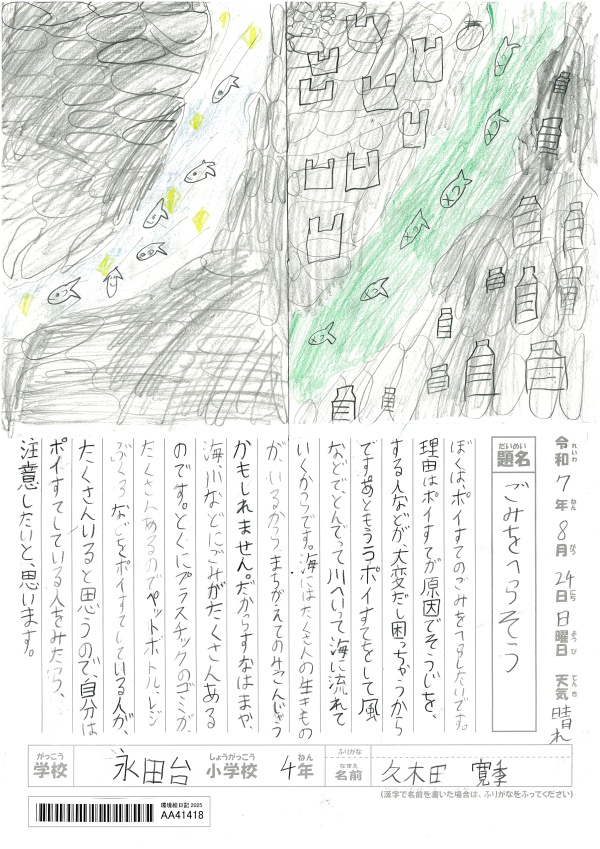 令和7年8月24日日曜日 天気 晴れ
れいわ ねん がつ にち ようび てんき
だいめい
題名 ごみをへらそう
ぼくは、ポイすてのごみをへらしたいです。
理由はポイすてが原因でそうじを、
する人などが、大変だし困っちゃうから
です。あともう1つポイすてをして風
などで、とんでって川へいって海に流れて
いくからです。海にはたくさんの生きもの
が、いるからまちがえてのみこんじゃう
かもしれません。だからすなはまや、
海、川などにごみがたくさんある
のです。とくにプラスチックのゴミが、
たくさんあるのでペットボトル、レジ
ぶくろなどをポイすてしている人が、
たくさんいると思うので、自分は
ポイすてしている人をみたら、
注意したいと、思います。
がっこう しょうがっこう ねん ふりがな
学校 永田台 小学校 4年
なまえ
名前 久木田 寛季
(漢字で名前を書いた場合は、ふりがなをふってください)
環境絵日記2025
AA41418